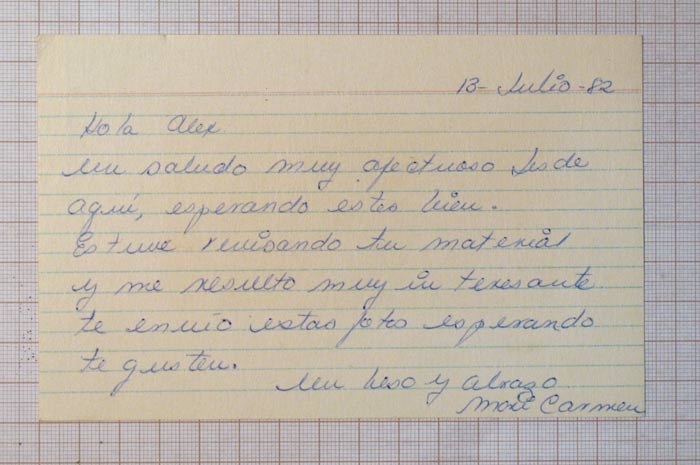 13- Julio -82
Hola Alex.
Un saludo muy afectuoso desde
aquí, esperando estes bien.
Estuve revisando tu material
y me resulto muy interesante
te envio estas fotos esperando
te gusten.
Un beso y abrazo.
Mari Carmen